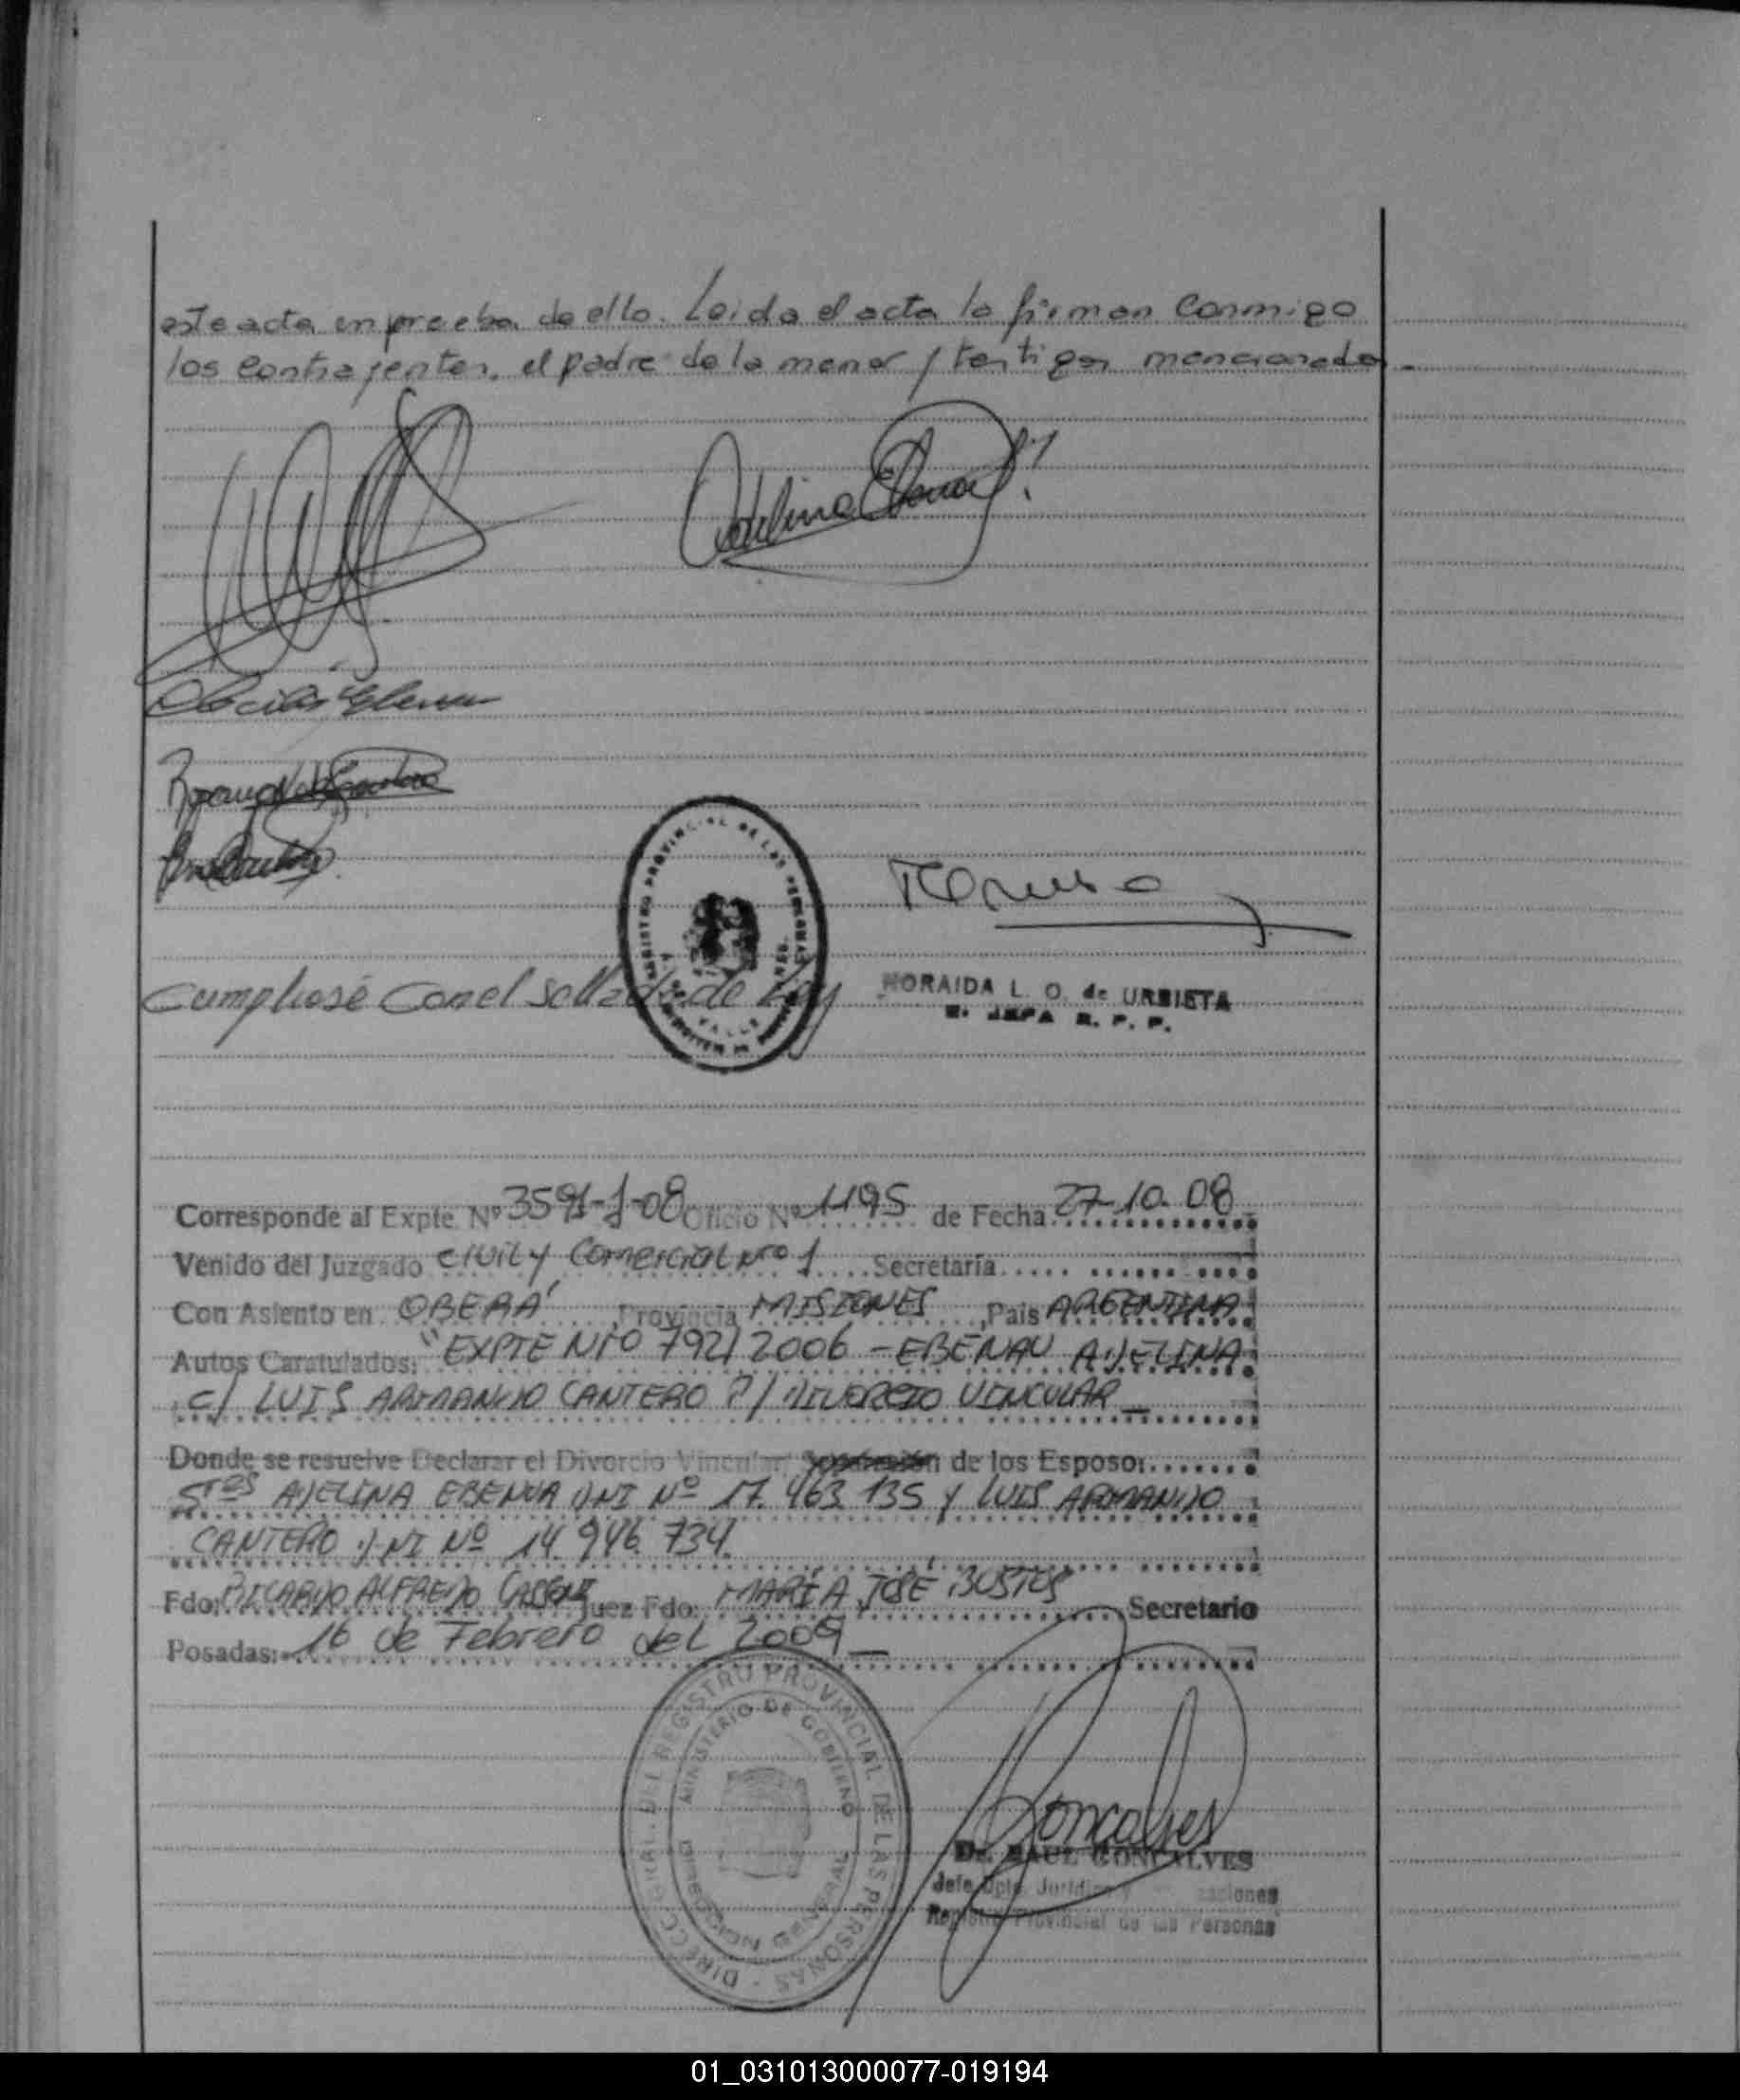 este acta en prueba de ello. Leida el acta la firman conmigo
los contrayentes, el padre de la menor y testigos mencionados.-
Adelina Ebenau
Cumpliose con el sellado de Ley
REGISTRO PROVINCIAL DE LAS PERSONAS
NORAIDA L. O. de URBIETA
JEFA R. P. P.
Corresponde al Expte Nº 3591-J-08 Oficio Nº 1195 de Fecha 27-10-08
Venido del Juzgado CIVIL y COMERCIAL Nro 1 Secretaría
Con Asiento en OBERÁ, Provincia MISIONES, País ARGENTINA
Autos Caratulados: "EXPTE Nro 792/2006 - EBENAU ADELINA
C/ LUIS ARMANDO CANTERO P/ DIVORCIO VINCULAR
Donde se resuelve Declarar el Divorcio Vincular de los Esposos
Sres ADELINA EBENUA DNI Nº 17.463.135 y LUIS ARMANDO
CANTERO DNI Nº 14.946.734.
Fdo: RICARDO ALFREDO Juez Fdo: MARÍA JOSÉ BUSTOS Secretario
Posadas: 16 de Febrero del 2009
DIRECC. GRAL. DEL REGISTRO PROVINCIAL DE LAS PERSONAS
MINISTERIO DE GOBIERNO
DIRECCION GENERAL
Goncalves
Dr. RAUL GONCALVES
Jefe Dpto. Jurídico y
Registro Provincial de las Personas
01_031013000077-019194